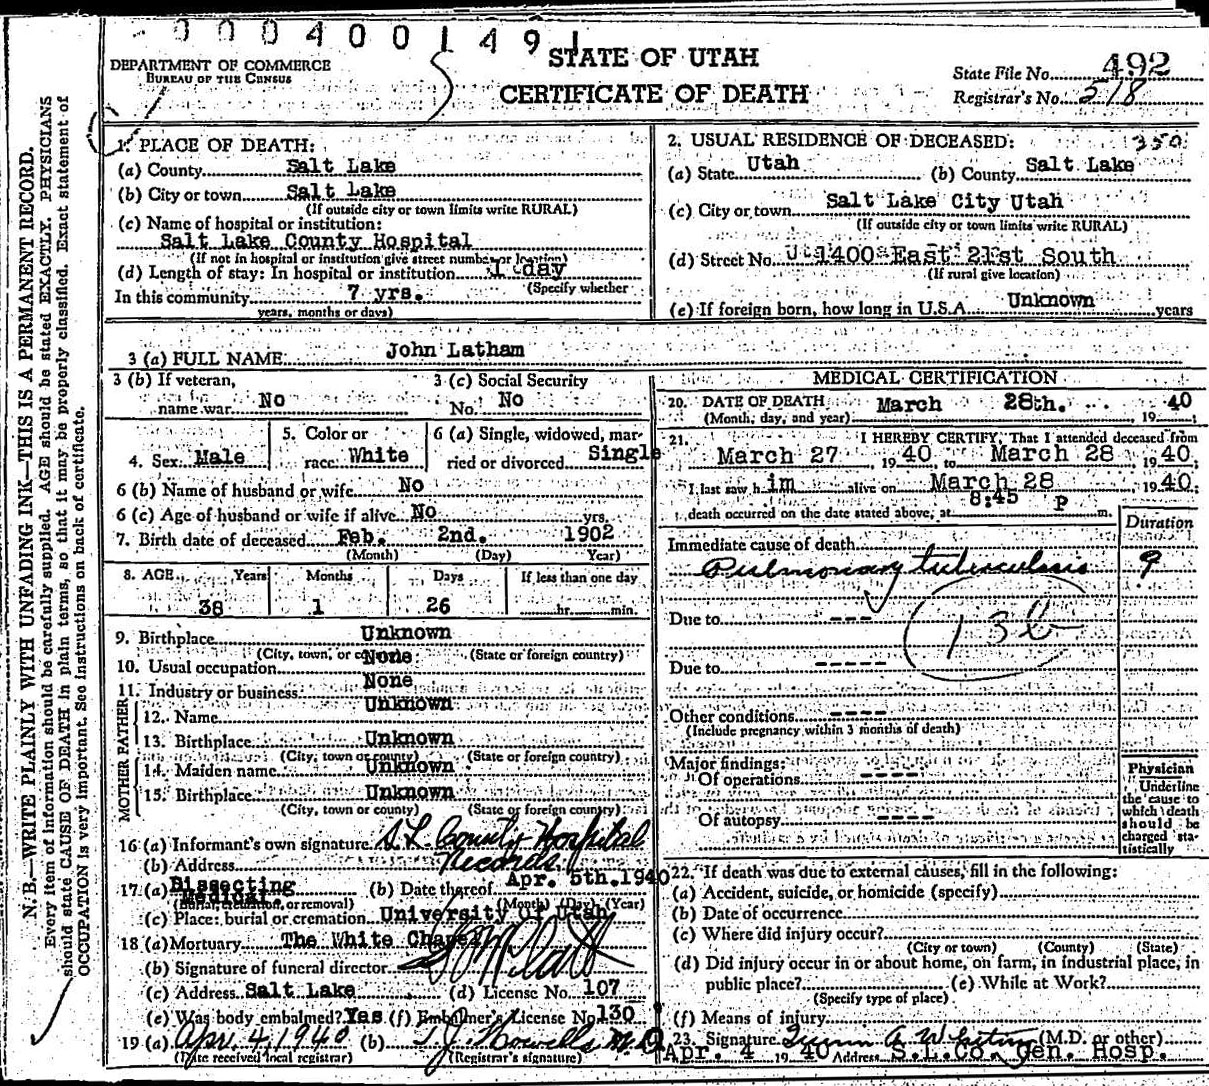 0004001491
STATE OF UTAH
CERTIFICATE OF DEATH
DEPARTMENT OF COMMERCE
BUREAU OF THE CENSUS
State File No. 492
Registrar's No. 518
N. B.—WRITE PLAINLY WITH UNFADING INK—THIS IS A PERMANENT RECORD.
Every item of information should be carefully supplied. AGE should be stated EXACTLY. PHYSICIANS
should state CAUSE OF DEATH in plain terms, so that it may be properly classified. Exact statement of
OCCUPATION is very important. See instructions on back of certificate.
1. PLACE OF DEATH:
(a) County Salt Lake
(b) City or town Salt Lake
(If outside city or town limits write RURAL)
(c) Name of hospital or institution:
Salt Lake County Hospital
(If not in hospital or institution give street number or location)
(d) Length of stay: In hospital or institution 1 day
(Specify whether
In this community 7 yrs.
years, months or days)
2. USUAL RESIDENCE OF DECEASED: 350
(a) State Utah (b) County Salt Lake
(c) City or town Salt Lake City Utah
(If outside city or town limits write RURAL)
(d) Street No. 1400 East 21st South
(If rural give location)
(e) If foreign born, how long in U.S.A. Unknown years
3 (a) FULL NAME John Latham
3 (b) If veteran,
name war No
3 (c) Social Security
No. No
4. Sex Male
5. Color or
race White
6 (a) Single, widowed, mar-
ried or divorced Single
6 (b) Name of husband or wife No
6 (c) Age of husband or wife if alive No yrs.
7. Birth date of deceased Feb. 2nd. 1902
(Month) (Day) Year)
8. AGE Years Months Days If less than one day
38 1 26 hr. min.
9. Birthplace Unknown
(City, town, or county) (State or foreign country)
10. Usual occupation None
11. Industry or business None
FATHER
12. Name Unknown
13. Birthplace Unknown
(City, town or county) (State or foreign country)
MOTHER
14. Maiden name Unknown
15. Birthplace Unknown
(City, town or county) (State or foreign country)
16 (a) Informant's own signature S. L. County Hospital
(b) Address Records
17 (a) Dissecting Medical (b) Date thereof Apr. 5th. 1940
(Burial, cremation, or removal) (Month) (Day) (Year)
(c) Place: burial or cremation University Of Utah
18 (a) Mortuary The White Chapel
(b) Signature of funeral director
(c) Address Salt Lake (d) License No. 107
(e) Was body embalmed? Yes (f) Embalmer's License No 130
19 (a) Apr. 4, 1940 (b) T. J. Howells M. D.
(Date received local registrar) (Registrar's signature)
MEDICAL CERTIFICATION
20. DATE OF DEATH March 28th. 1940
(Month, day, and year)
21. I HEREBY CERTIFY, That I attended deceased from
March 27, 1940, to March 28, 1940;
I last saw him alive on March 28, 1940;
death occurred on the date stated above, at 8:45 P m.
Duration
Immediate cause of death
Pulmonary tuberculosis ?
Due to ---
13b
Due to ----
Other conditions ----
(Include pregnancy within 3 months of death)
Major findings:
Of operations ----
Of autopsy ----
Physician
Underline
the cause to
which death
should be
charged sta-
tistically
22. If death was due to external causes, fill in the following:
(a) Accident, suicide, or homicide (specify)
(b) Date of occurrence
(c) Where did injury occur?
(City or town) (County) (State)
(d) Did injury occur in or about home, on farm, in industrial place, in
public place? (e) While at Work?
(Specify type of place)
(f) Means of injury
23. Signature (M.D. or other)
Apr. 4 1940 Address S.L.Co. Gen. Hosp.